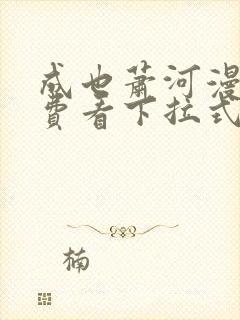 成也萧河漫
费看下拉式
楠